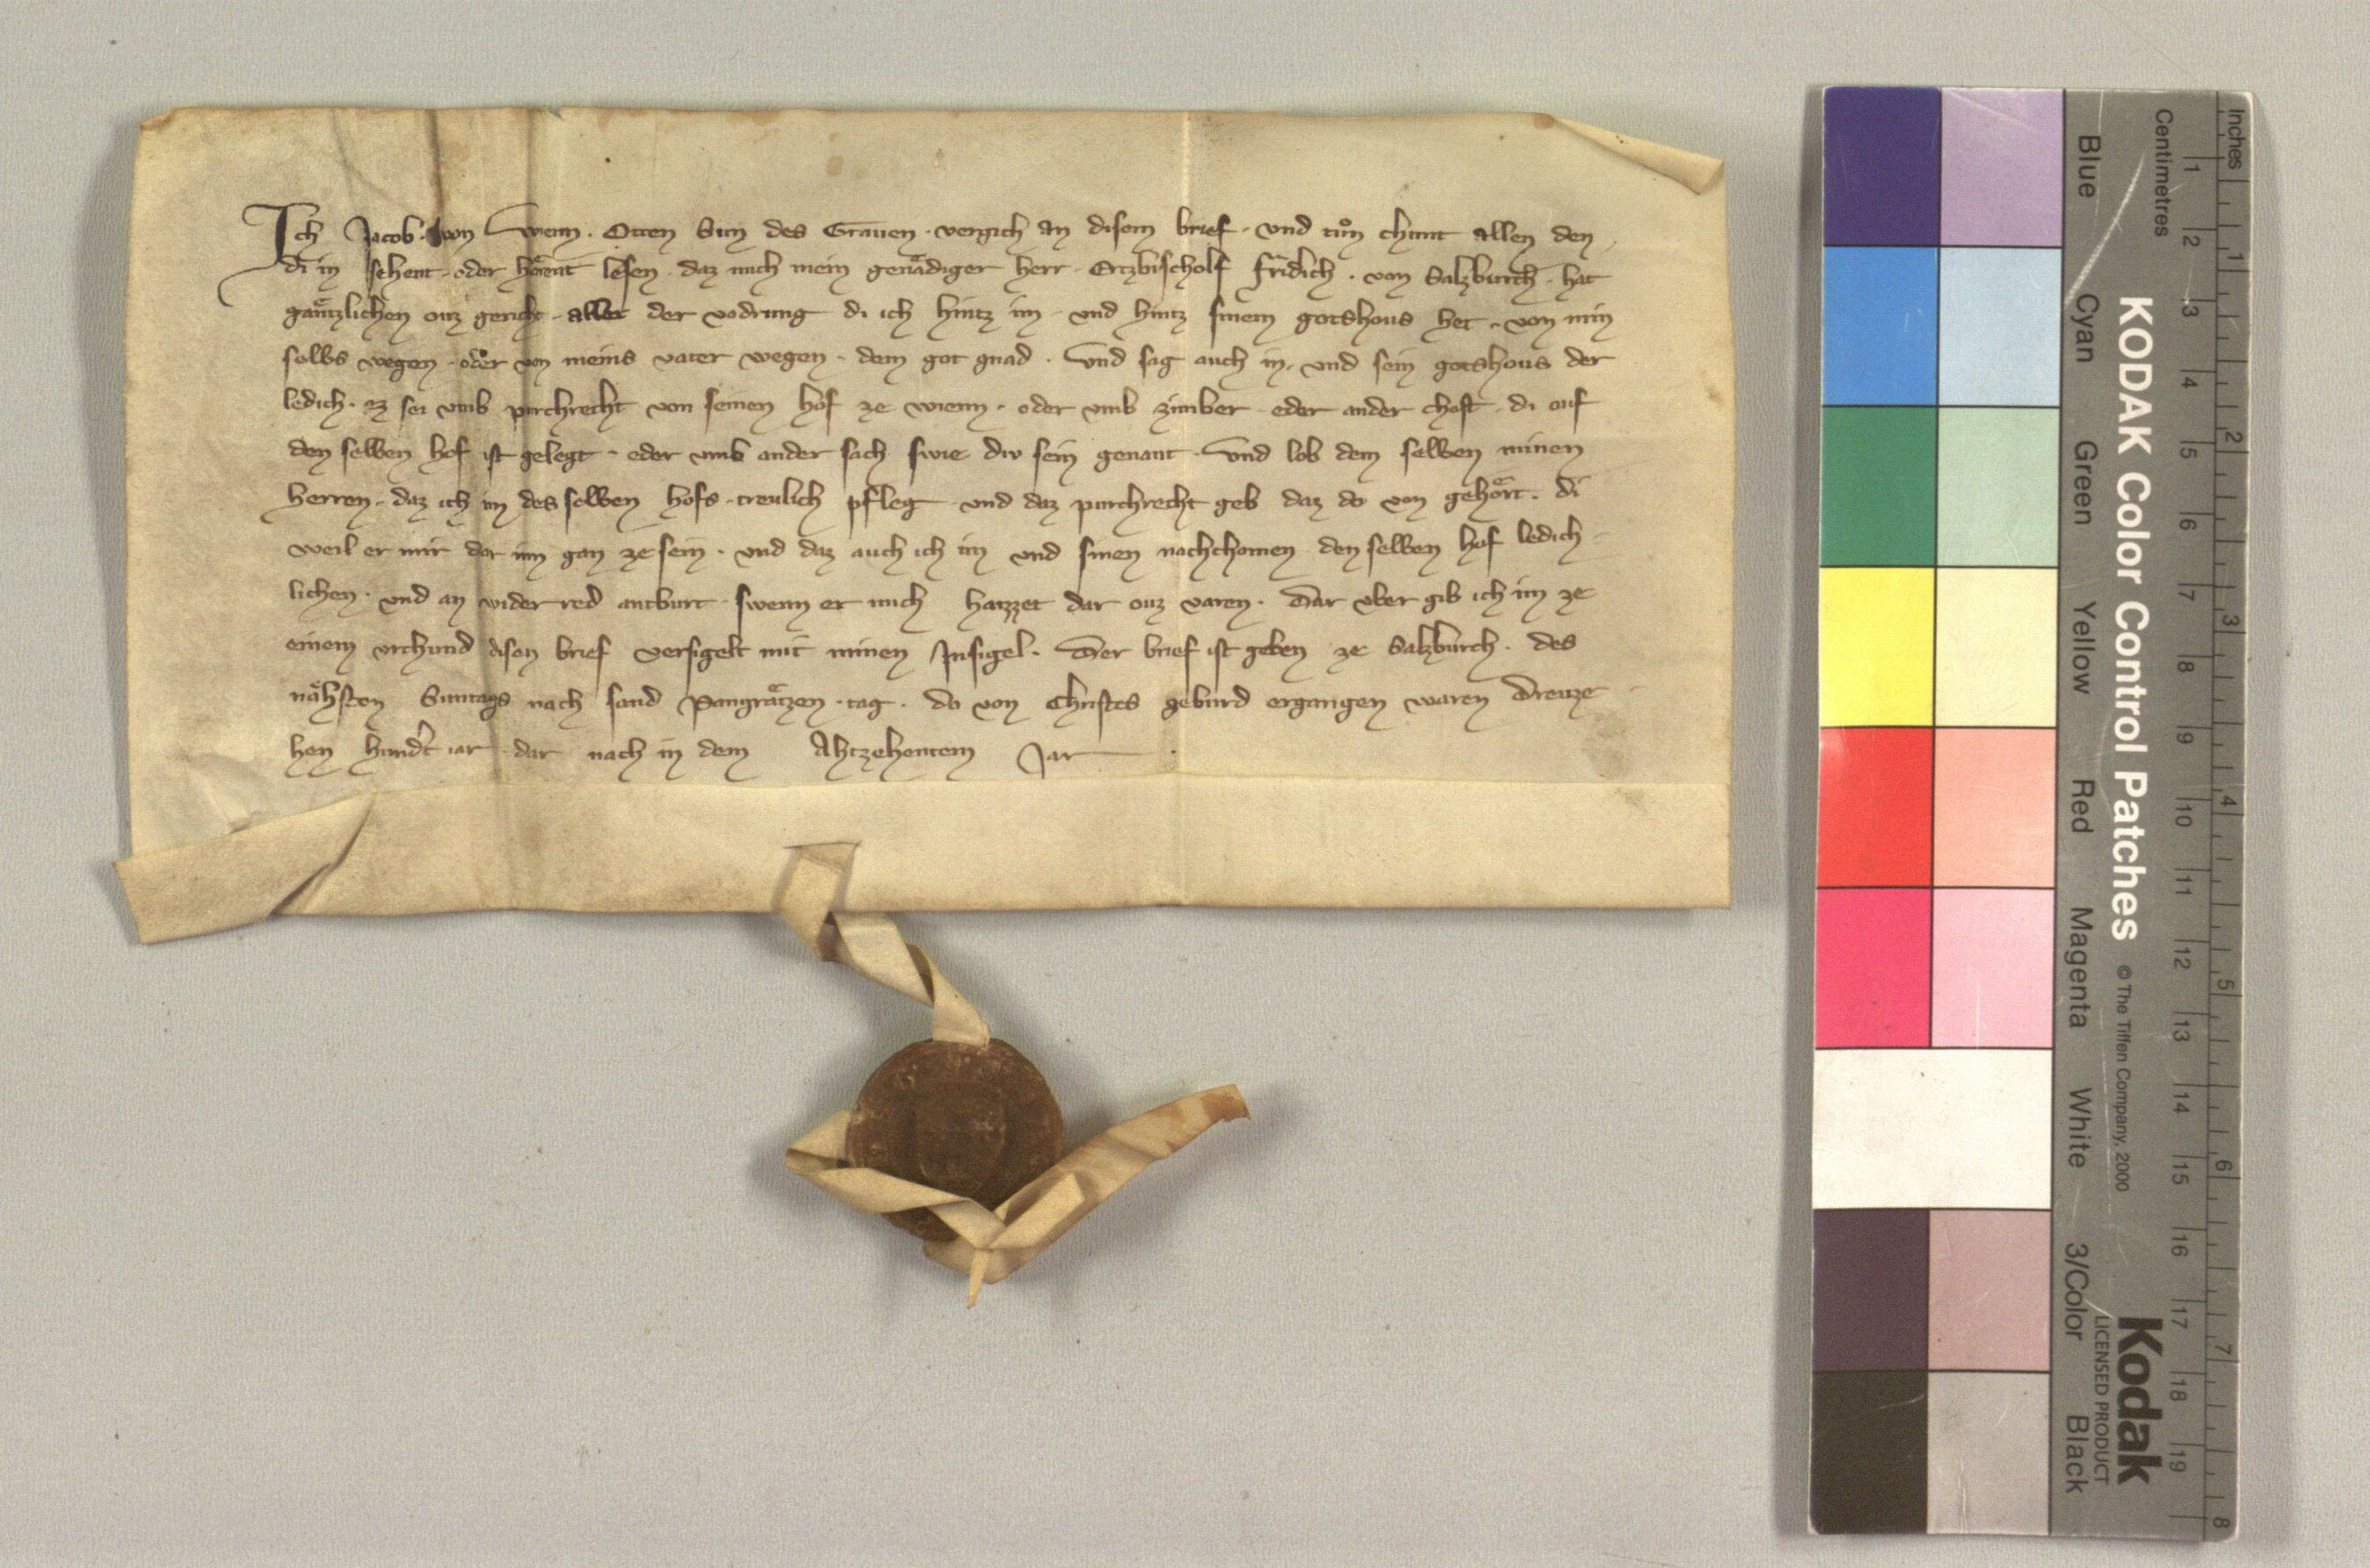 Ich Jacob · von Wienn · Otten Sun des Grauen · vergich an disem brief · vnd tuͦn chunt allen den
di in sehent · oder hoͤrent lesen · daz mich mein genaͤdiger herr · Ertzbischolf Fridich · von Salzburch · hat
gaͤntzlichen ouz gericht · aller der vodrung di ich hintz im · vnd hintz sinem gotshous het · von min
selbs wegen · oder von meins vater wegen · dem got gnad · Vnd sag auch in · vnd sein gotshous der
ledich · ez sei vmb purchrecht von seinen hof ze wienn · oder vmb zimber · eder ander chost · di ouf
den selben hof ist gelegt · eder vmb ander sach swie div sein genant · Vnd lob dem selben minen
herren · daz ich im des selben hofs · treulich pfleg · vnd daz purchrecht geb daz do von gehoͤrt · di
weil er mir dar inn gan ze sein · vnd daz auch ich im vnd sinen nachchomen den selben hof ledich
lichen · vnd an wider red antburt · swenn er mich haizzet dar ouz varen · Dar vber gib ich im ze
einem vrchund disen brief versigelt mit minen Insigel · Der brief ist geben ze Salzburch · des
naͤhsten Suntags nach sand Pangraͤtzen · tag · do von Christes geburd ergangen waren Dreuze
hen hundt iar · dar nach in dem Ahtzehentem Jar
KODAK Color Control Patches
© The Tiffen Company, 2000
Kodak
LICENSED PRODUCT
Inches
1 2 3 4 5 6 7 8
Centimetres
1 2 3 4 5 6 7 8 9 10 11 12 13 14 15 16 17 18 19
Blue
Cyan
Green
Yellow
Red
Magenta
White
3/Color
Black